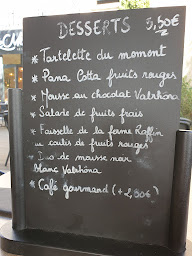 DESSERTS 5,50€
* Tartelette du moment
* Pana Cotta fruits rouges
* Mousse au chocolat Valrhôna
* Salade de fruits frais
* Faisselle de la ferme Raffin
ou coulis de fruits rouges
* Duo de mousse noir
blanc Valrhôna
* Café gourmand (+2,50€)